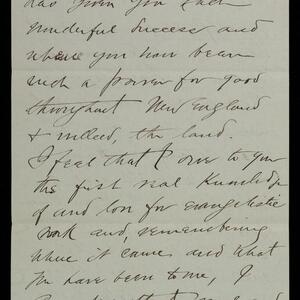 has given you such
wonderful success and
where you have been
such a power for good
throughout New England
& indeed, the land.
I feel that I owe to you
the first real knowledge
of and love for evangelistic
work and, remembering
where it came and what
you have been to me, I
that